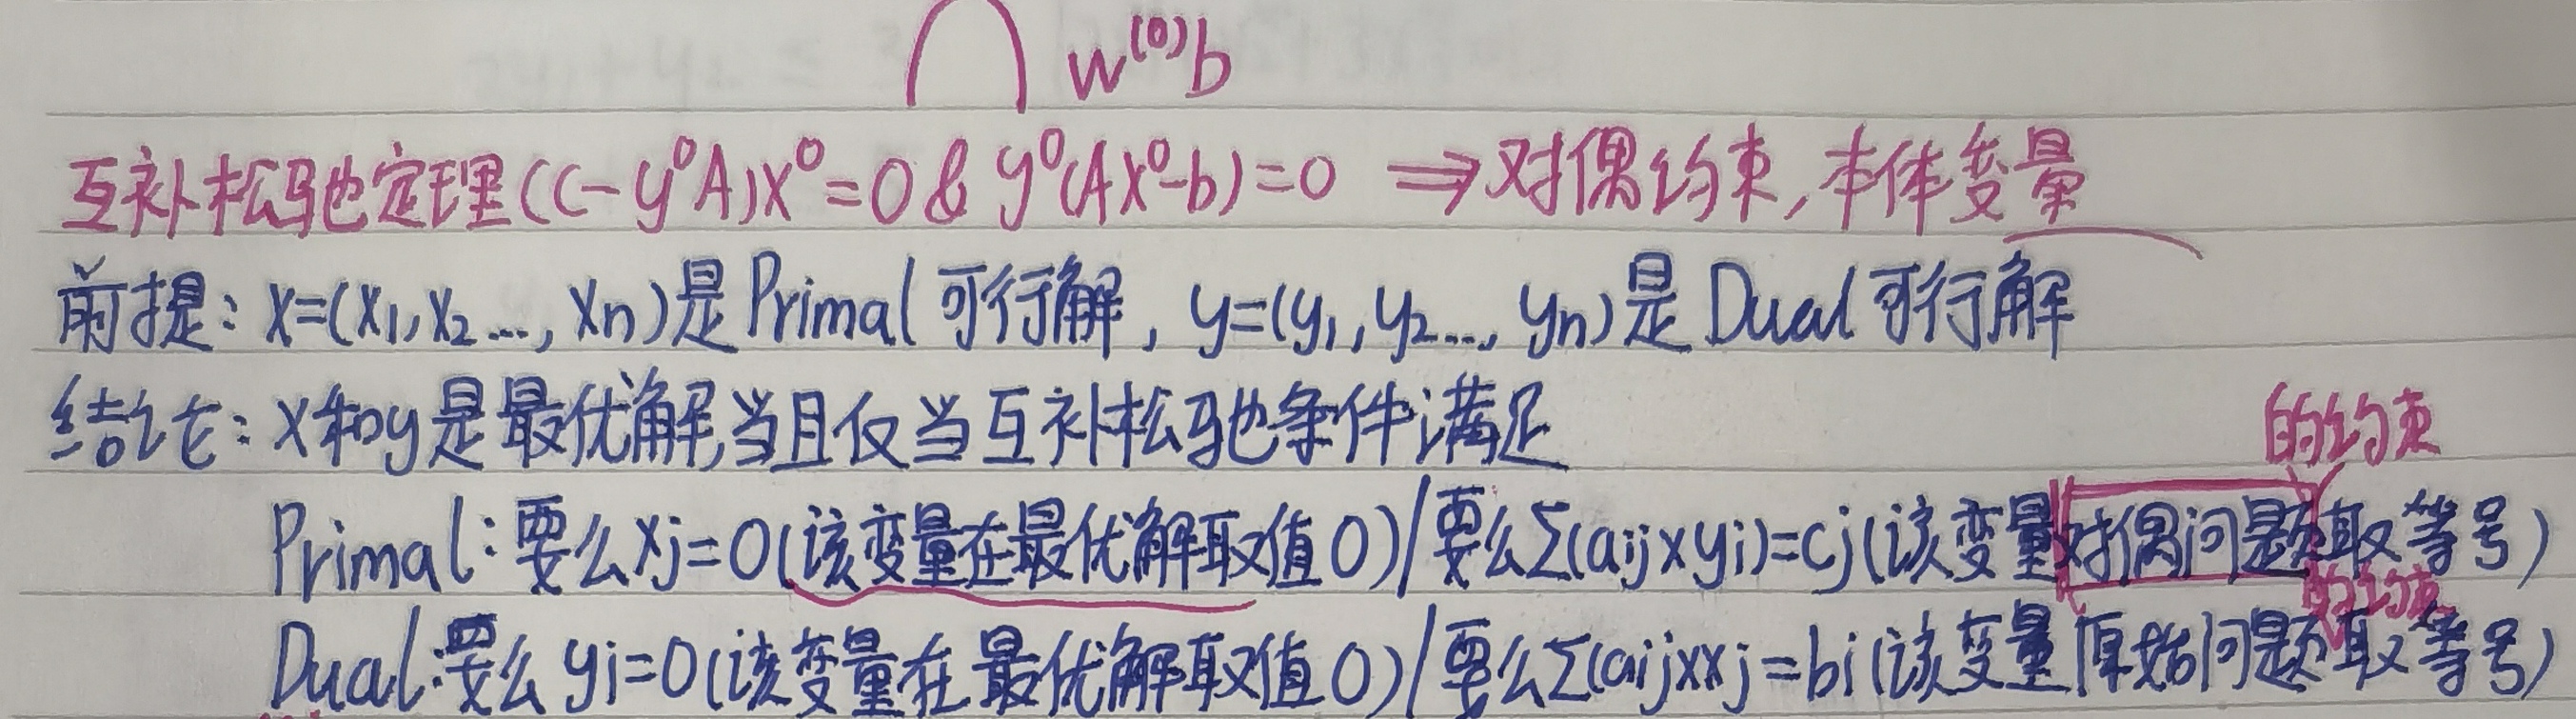 w⁽⁰⁾b
互补松弛定理(C-y⁰A)X⁰=0 & y⁰(AX⁰-b)=0 ⇒对偶约束,本体变量
前提: X=(X₁,X₂...,Xn)是Primal可行解, y=(y₁,y₂...,yn)是Dual可行解
结论: X和y是最优解,当且仅当互补松弛条件满足
的约束
Primal:要么Xj=0(该变量在最优解取值0)/要么Σ(aij×yi)=cj(该变量对偶问题取等号)
的约束
Dual:要么yi=0(该变量在最优解取值0)/要么Σ(aij×xj=bi(该变量原始问题取等号)